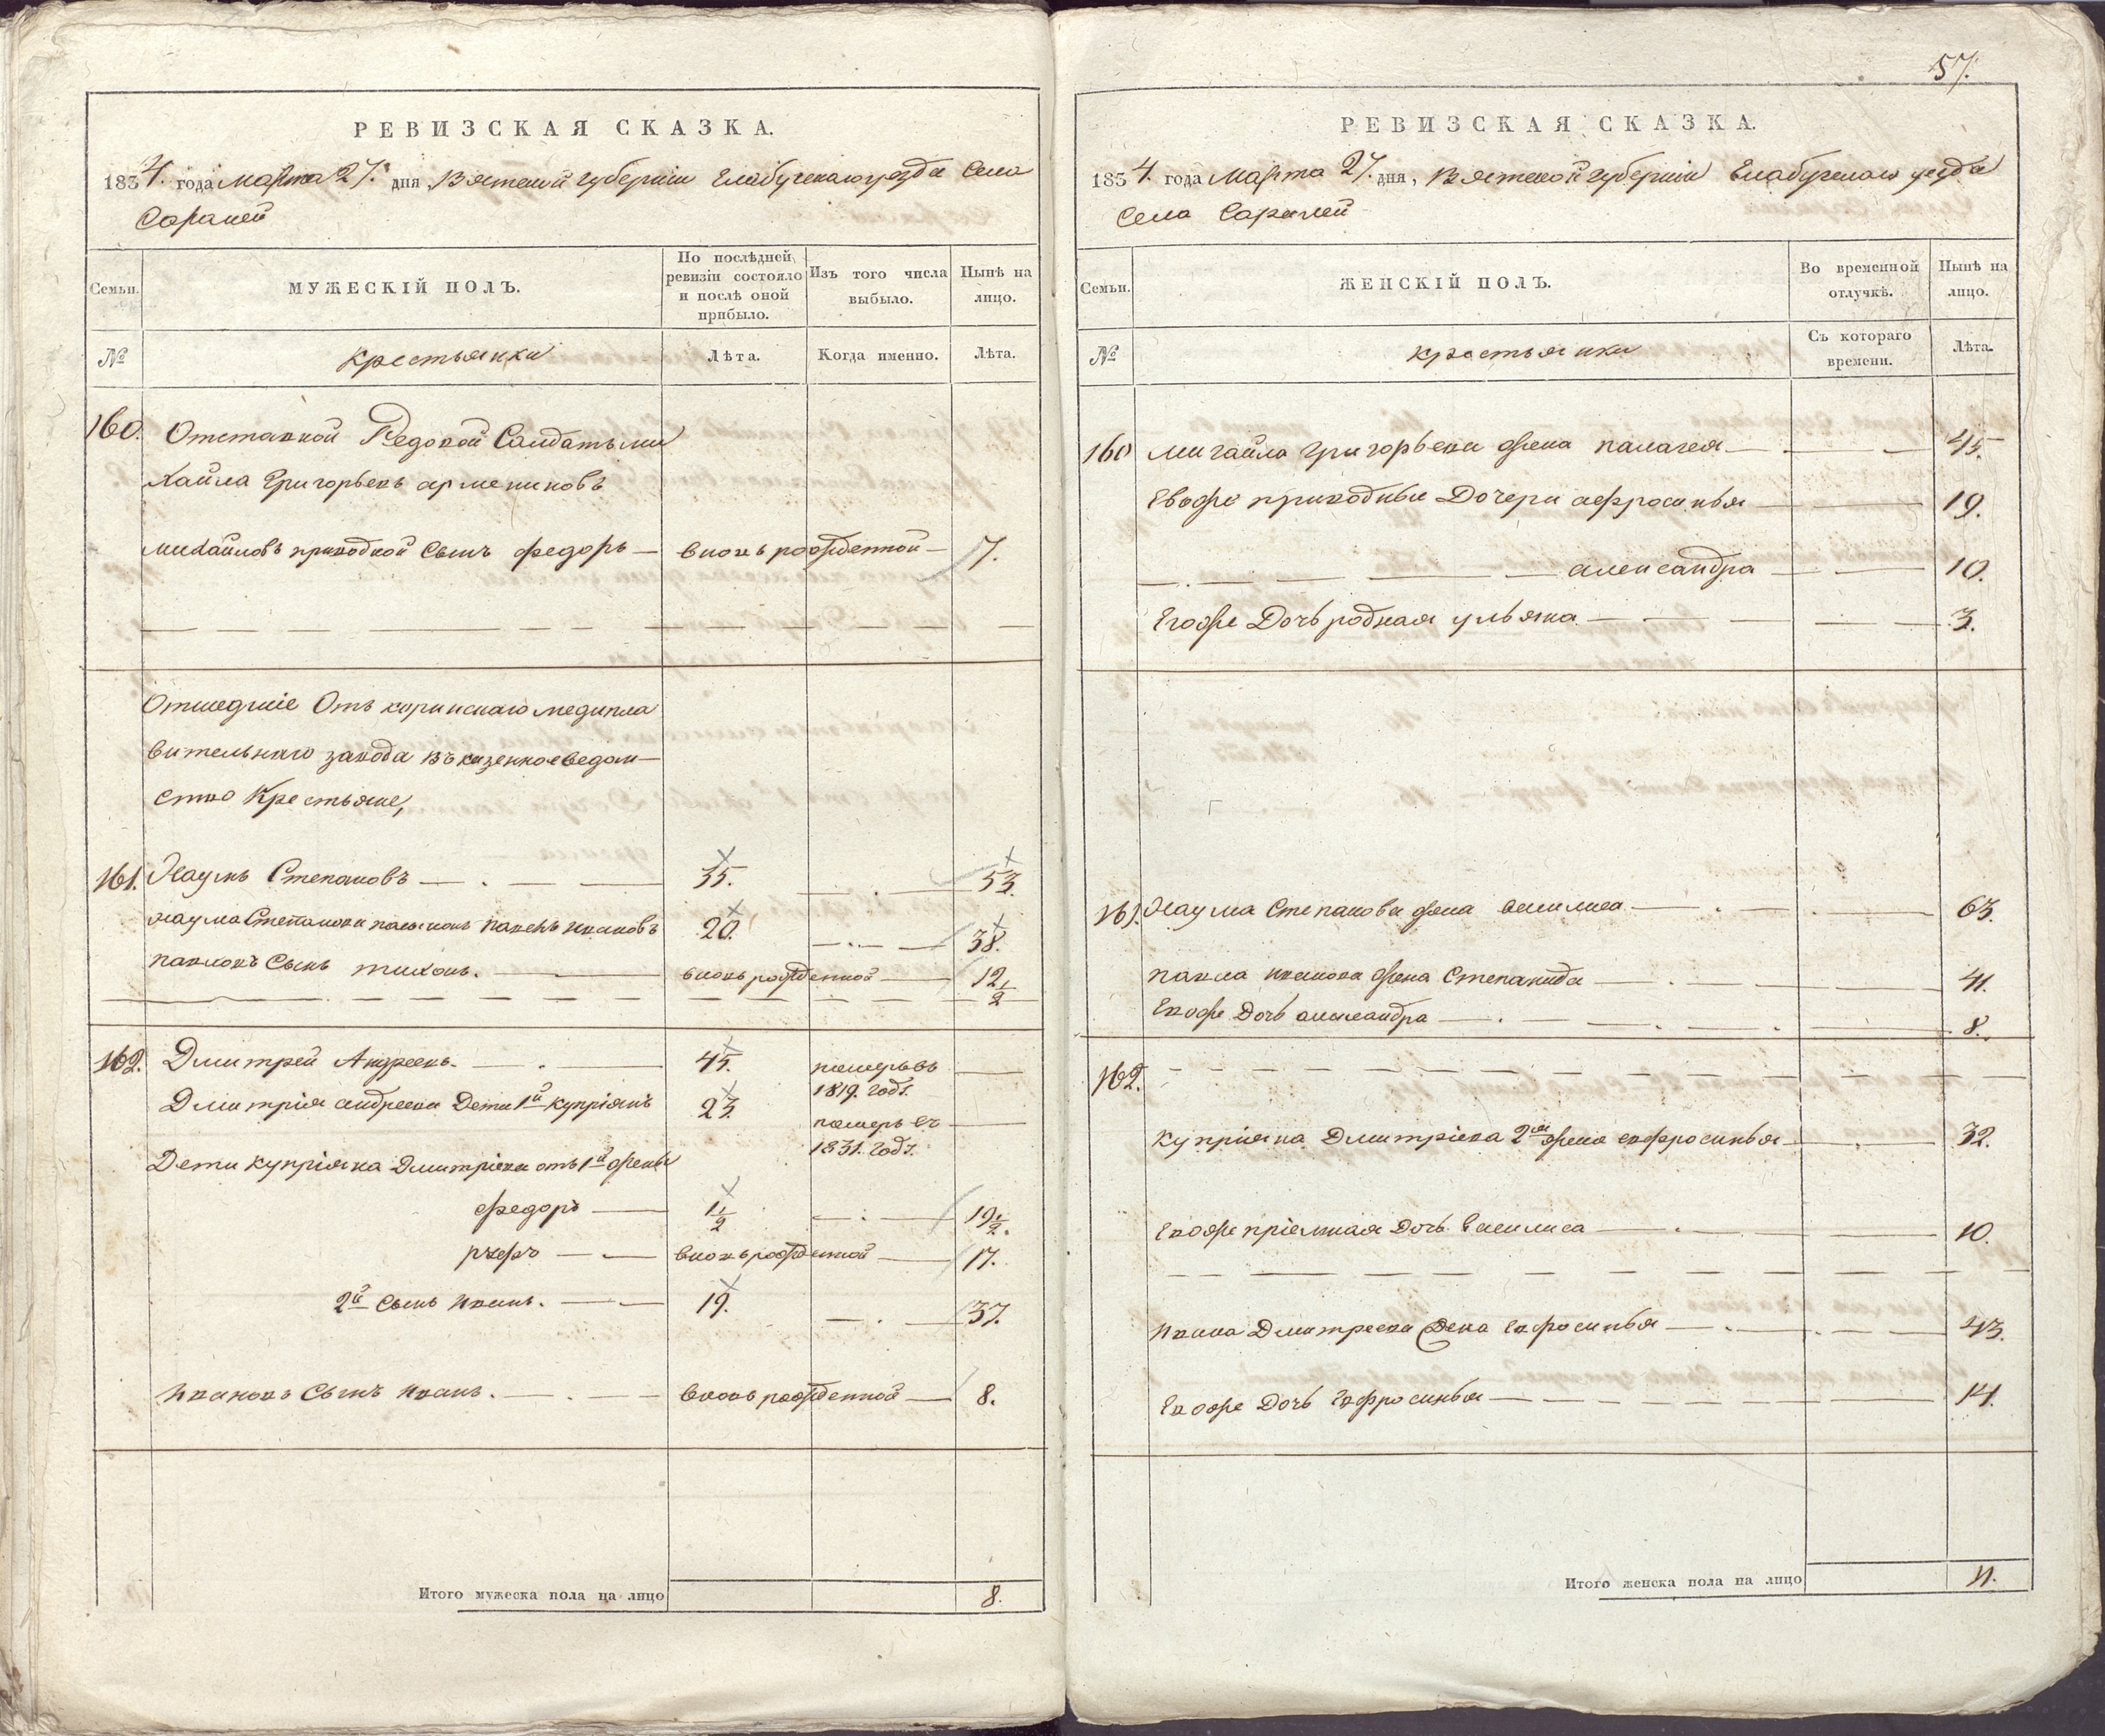 РЕВИЗСКАЯ СКАЗКА.
1834. года марта 27. дня Вятской губерніи Елабужскаго уезда Села
Саралей
Семьи.
МУЖЕСКІЙ ПОЛЪ.
По послѣдней ревизіи состояло и послѣ оной прибыло.
Изъ того числа выбыло.
Нынѣ на лицо.
№
крестьянки
Лѣта.
Когда именно.
Лѣта.
160. Отставной Редовой Салдатъ ми
хайла Григорьевъ
михайловъ приводной Сынъ федоръ — вновь рожденной — 7.
Отшедшіе Отъ коринскаго медипла
вительнаго завода въ казенное ведом—
ство Крестьяне,
161. Наумъ Степановъ — 35. — 53.
наума Степанова пасынокъ павелъ ивановъ 20. — 38.
павловъ Сынъ тихонъ. — вновь рожденной — 12 1/2
162. Дмитрей Андреевъ. — 45. померъ въ
1819. годе.
Дмитрія андреева Дети 1й купріянъ 23. померъ въ
1831. годе.
Дети купріяна Дмитріева отъ 1й жены
федоръ — 1 1/2 — 19 1/2.
— вновь рожденной — 17.
2й сынъ иванъ. — 19. — 37.
ивановъ Сынъ иванъ. — вновь рожденной — 8.
Итого мужеска пола на лицо 8.
57.
РЕВИЗСКАЯ СКАЗКА.
1834. года марта 27. дня, Вятской губерніи Елабужскаго уезда
Села Саралей
Семьи.
ЖЕНСКІЙ ПОЛЪ.
Во временной отлучкѣ.
Нынѣ на лицо.
№
крестьянки
Съ котораго времени.
Лѣта.
160 михайла григорьева жена палагея — 45.
Евоже приводные Дочери афросинья — 19.
— александра — 10.
Егоже Дочь родная ульяна — 3.
161. Наума Степанова жена василиса — 63.
павла иванова жена Степанида — 41.
Евоже Дочь александра — 8.
162.
Купріяна Дмитріева 2я жена ефросинья — 32.
Евоже пріемная Дочь василиса — 10.
ивана Дмитреева Жена Ефросинья — 43.
Евоже Дочь Ефросинья — 14.
Итого женска пола на лицо 11.